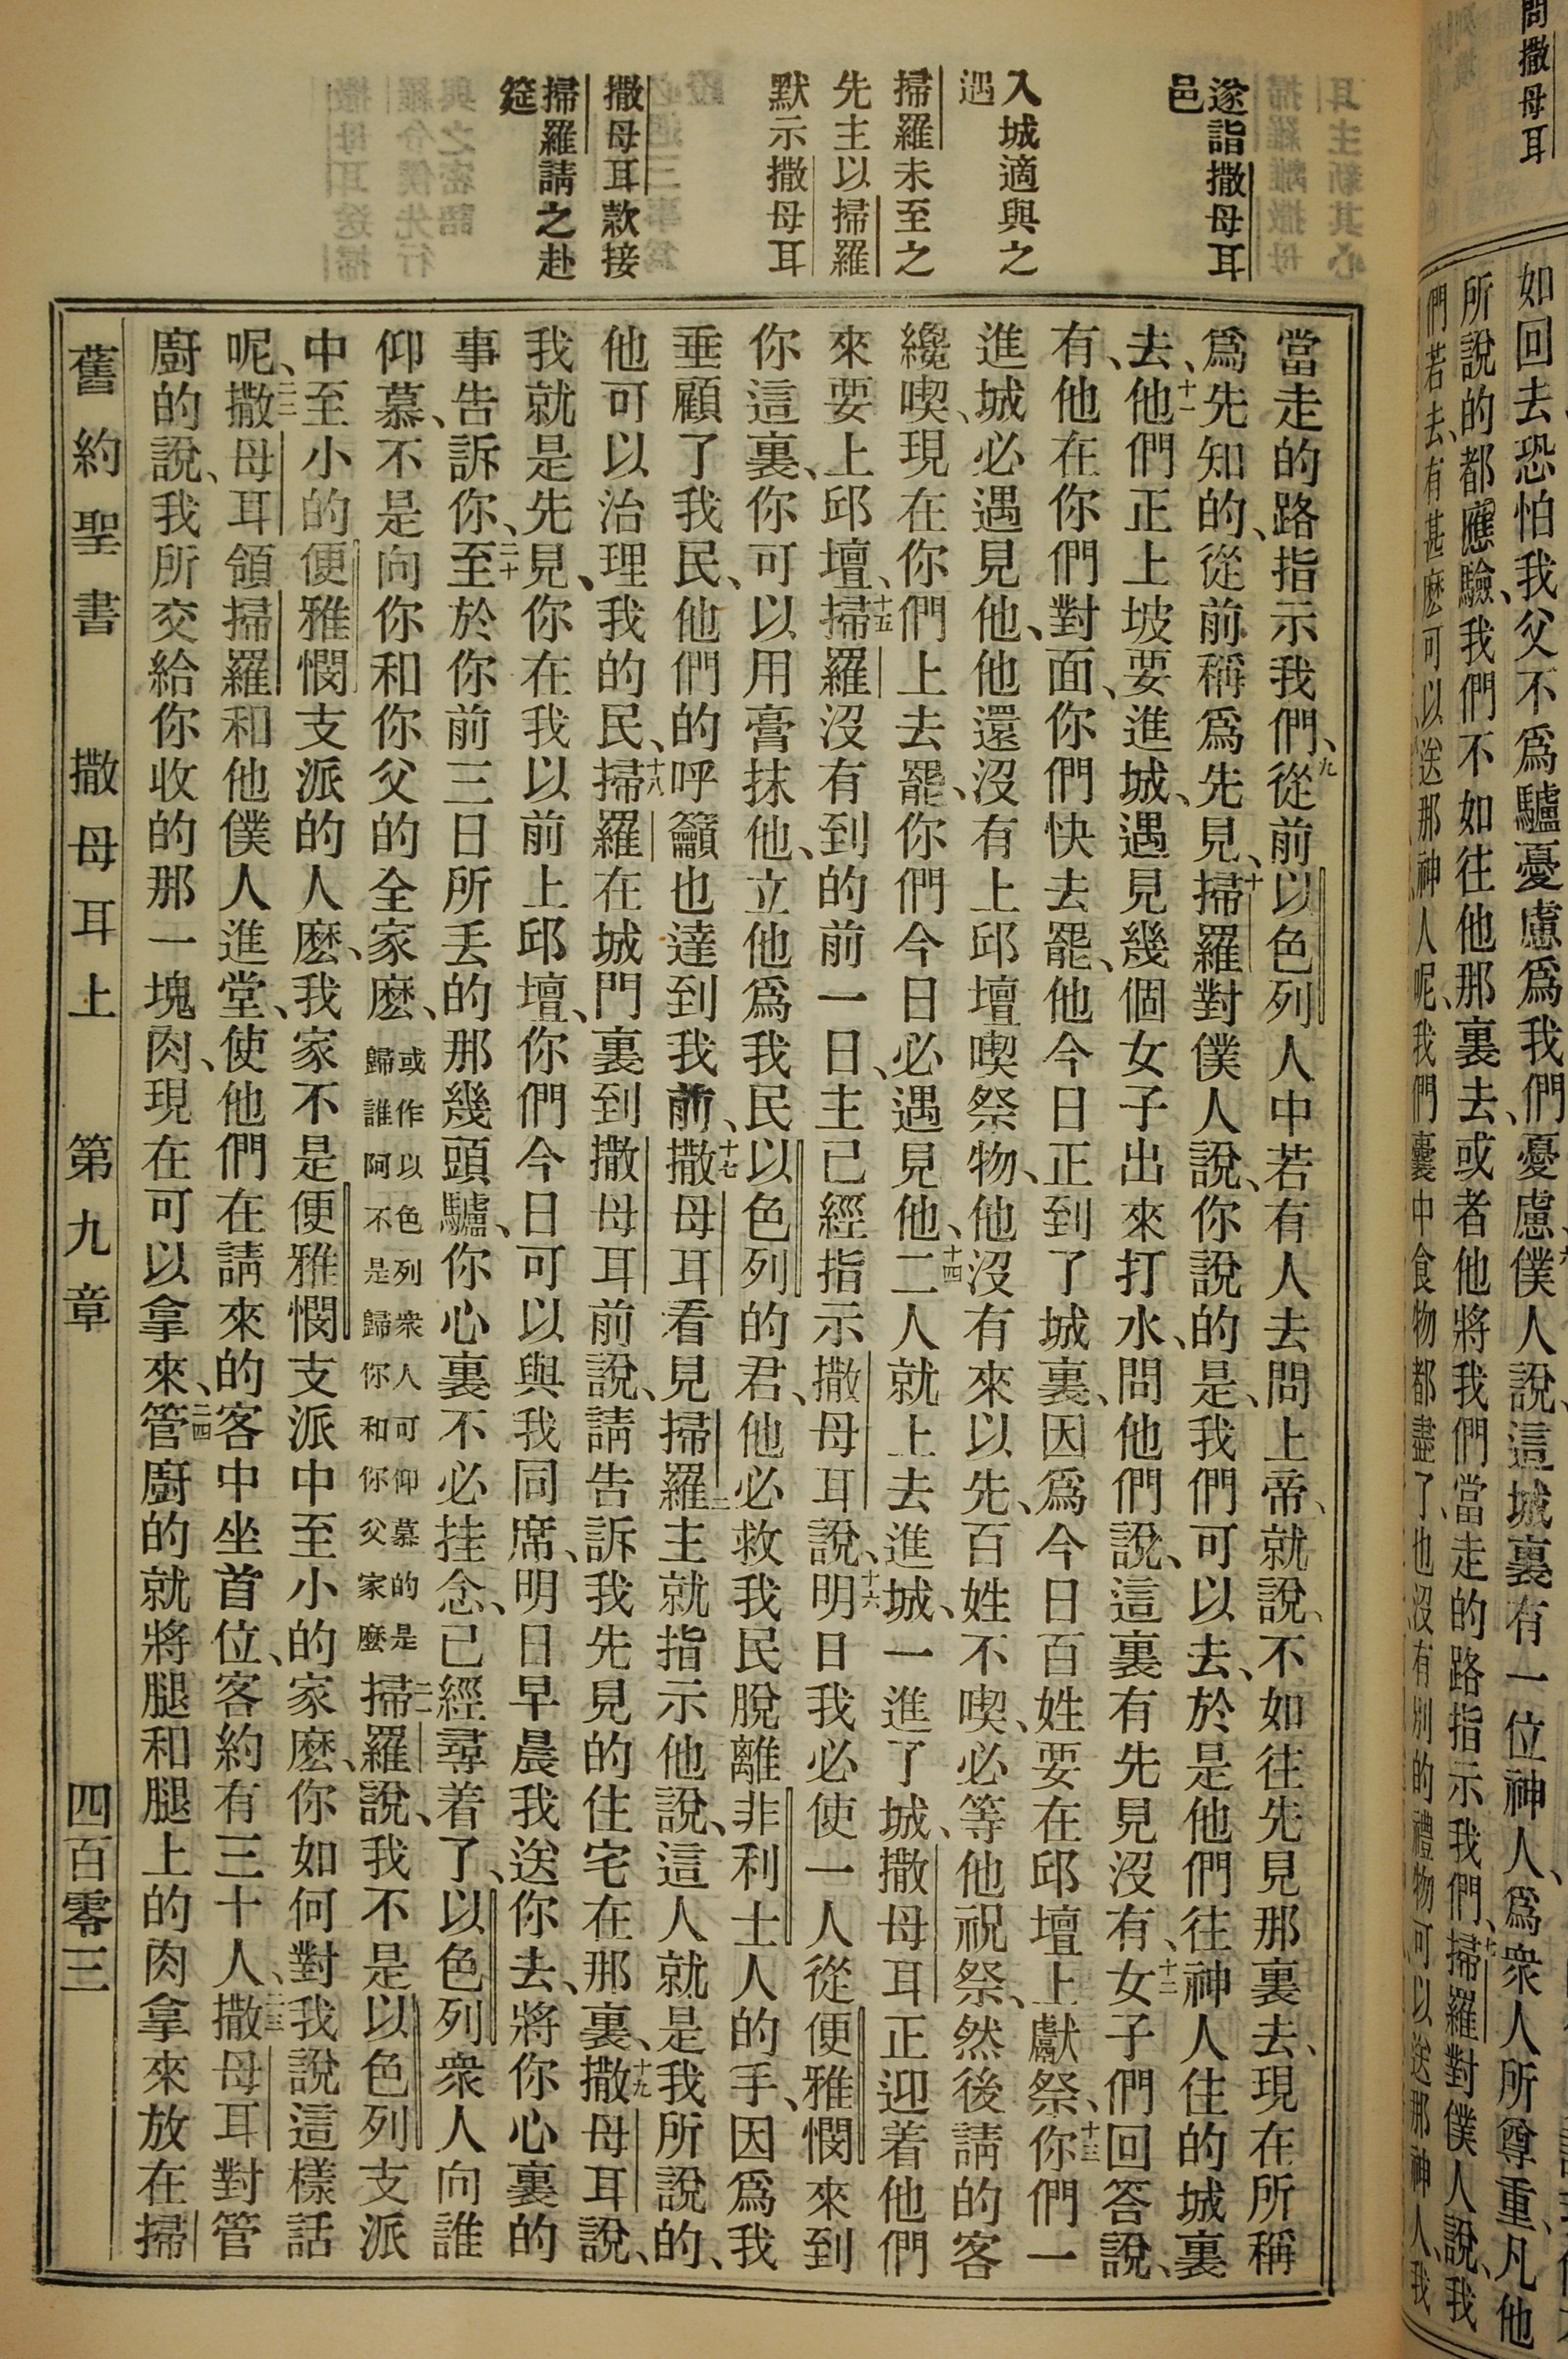 問撒母耳
如回去恐怕我父不爲驢憂慮爲我們憂慮、僕人說、這城裏有一位神人、爲衆人所尊重、凡他
所說的都應驗、我們不如往他那裏去、或者他將我們當走的路指示我們、掃羅對僕人說、我
們若去、有甚麽可以送那神人呢、我們囊中食物都盡了、也沒有別的禮物可以送那神人、我
遂詣撒母耳
邑
入城適與之
遇
掃羅未至之
先主以掃羅
默示撒母耳
撒母耳款接
掃羅請之赴
筵
當走的路指示我們、九從前以色列人中若有人去問上帝、就說、不如往先見那裏去、現在所稱
爲先知的、從前稱爲先見、十掃羅對僕人說、你說的是、我們可以去、於是他們往神人住的城裏
去、十一他們正上坡要進城、遇見幾個女子出來打水、問他們說、這裏有先見沒有、十二女子們回答說、
有、他在你們對面、你們快去罷、他今日正到了城裏、因爲今日百姓要在邱壇上獻祭、十三你們一
進城必遇見他、他還沒有上邱壇喫祭物、他沒有來以先、百姓不喫、必等他祝祭、然後請的客
纔喫、現在你們上去罷、你們今日必遇見他、十四二人就上去進城、一進了城、撒母耳正迎着他們
來要上邱壇、十五掃羅沒有到的前一日、主已經指示撒母耳說、十六明日我必使一人從便雅憫來到
你這裏、你可以用膏抹他、立他爲我民以色列的君、他必救我民脫離非利士人的手、因爲我
垂顧了我民、他們的呼籲也達到我前、十七撒母耳看見掃羅、主就指示他說、這人就是我所說的、
他可以治理我的民、十八掃羅在城門裏到撒母耳前說、請告訴我先見的住宅在那裏、十九撒母耳說、
我就是先見、你在我以前上邱壇、你們今日可以與我同席、明日早晨我送你去、將你心裏的
事告訴你、二十至於你前三日所丟的那幾頭驢、你心裏不必挂念、已經尋着了、以色列衆人向誰
仰慕、不是向你和你父的全家麽、或作以色列衆人可仰慕的是歸誰阿不是歸你和你父家麽二一掃羅說、我不是以色列支派
中至小的便雅憫支派的人麽、我家不是便雅憫支派中至小的家麽、你如何對我說這樣話
呢、二二撒母耳領掃羅和他僕人進堂、使他們在請來的客中坐首位、客約有三十人、二三撒母耳對管
廚的說、我所交給你收的那一塊肉、現在可以拿來、二四管廚的就將腿和腿上的肉拿來放在掃
舊約聖書 撒母耳上 第九章 四百零三